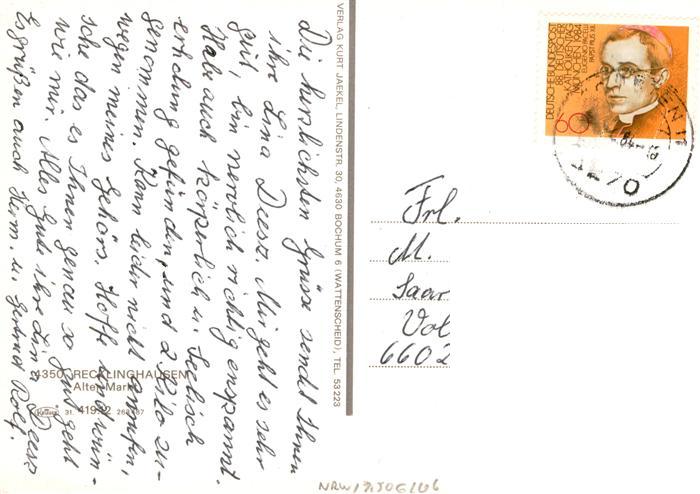 Die herzlichsten Grüße sendet Ihnen
ihre Lina Deesz. Mir geht es sehr
gut, bin nervlich richtig enspannt.
Habe auch körperlich u. Seelisch
erholung gefunden, und 2 Kilo zu-
genommen. Kann leider nicht anrufen,
wegen meines Gehörs. Hoffe und wün-
sche das es Ihnen genau so gut geht
wie mir. Alles Gute ihre Lina Deesz
Es grüßen auch Herm. u. Gertrud Rolf.
4350 RECKLINGHAUSEN
Alter Markt
31. 419.22
VERLAG KURT JAEKEL, LINDENSTR. 30, 4630 BOCHUM 6 (WATTENSCHEID), TEL. 53 223
DEUTSCHE BUNDESPOST
88. DEUTSCHER
KATHOLIKENTAG
MÜNCHEN 1984
EUGENIO PACELLI
PAPST PIUS XII.
60
Frl.
M.
Saar
Vol
6602